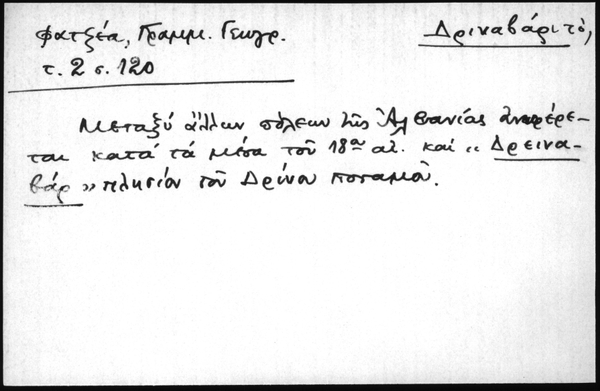 Φατζέα, Γραμμ. Γεωγρ.
τ. 2 σ. 120
Δριναβάρι τό,
Μεταξύ ἄλλων πόλεων τῆς Ἀλβανίας ἀναφέρε-
ται κατά τά μέσα τοῦ 18ου αἰ. καί „Δρεινα-
βάρ" πλησίον τοῦ Δρίνου ποταμοῦ.